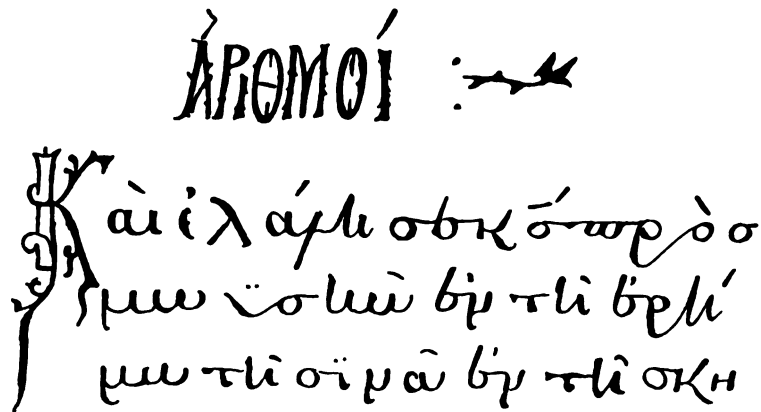 ἈΡΙΘΜΟΊ :
Καὶ ἐλάλησε κ̅ς̅ πρὸσ
μωϋσῆν ἐν τῆ ἐρή
μω τῆ σϊνᾶ ἐν τῆ σκη